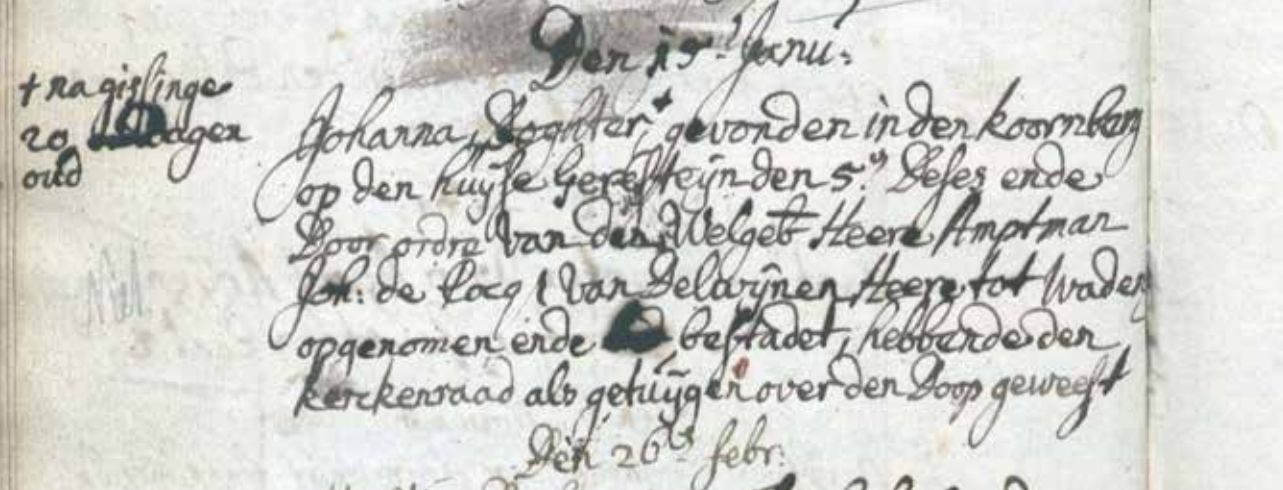 Den 15.t Janu:
† na gissinge
20 dagen
oud
Johanna, Doghter, † gevonden in den koornberg
op den huijse Geresteijn den 5.n Deses ende
Door ordre van den Welgeb Heere Amptman
Joh: de Cocq van Delwijnen, Heere tot Waden
opgenomen ende bestadet, hebbende den
kerckenraad als getuijgen over den Doop geweest
Den 26.t febr: